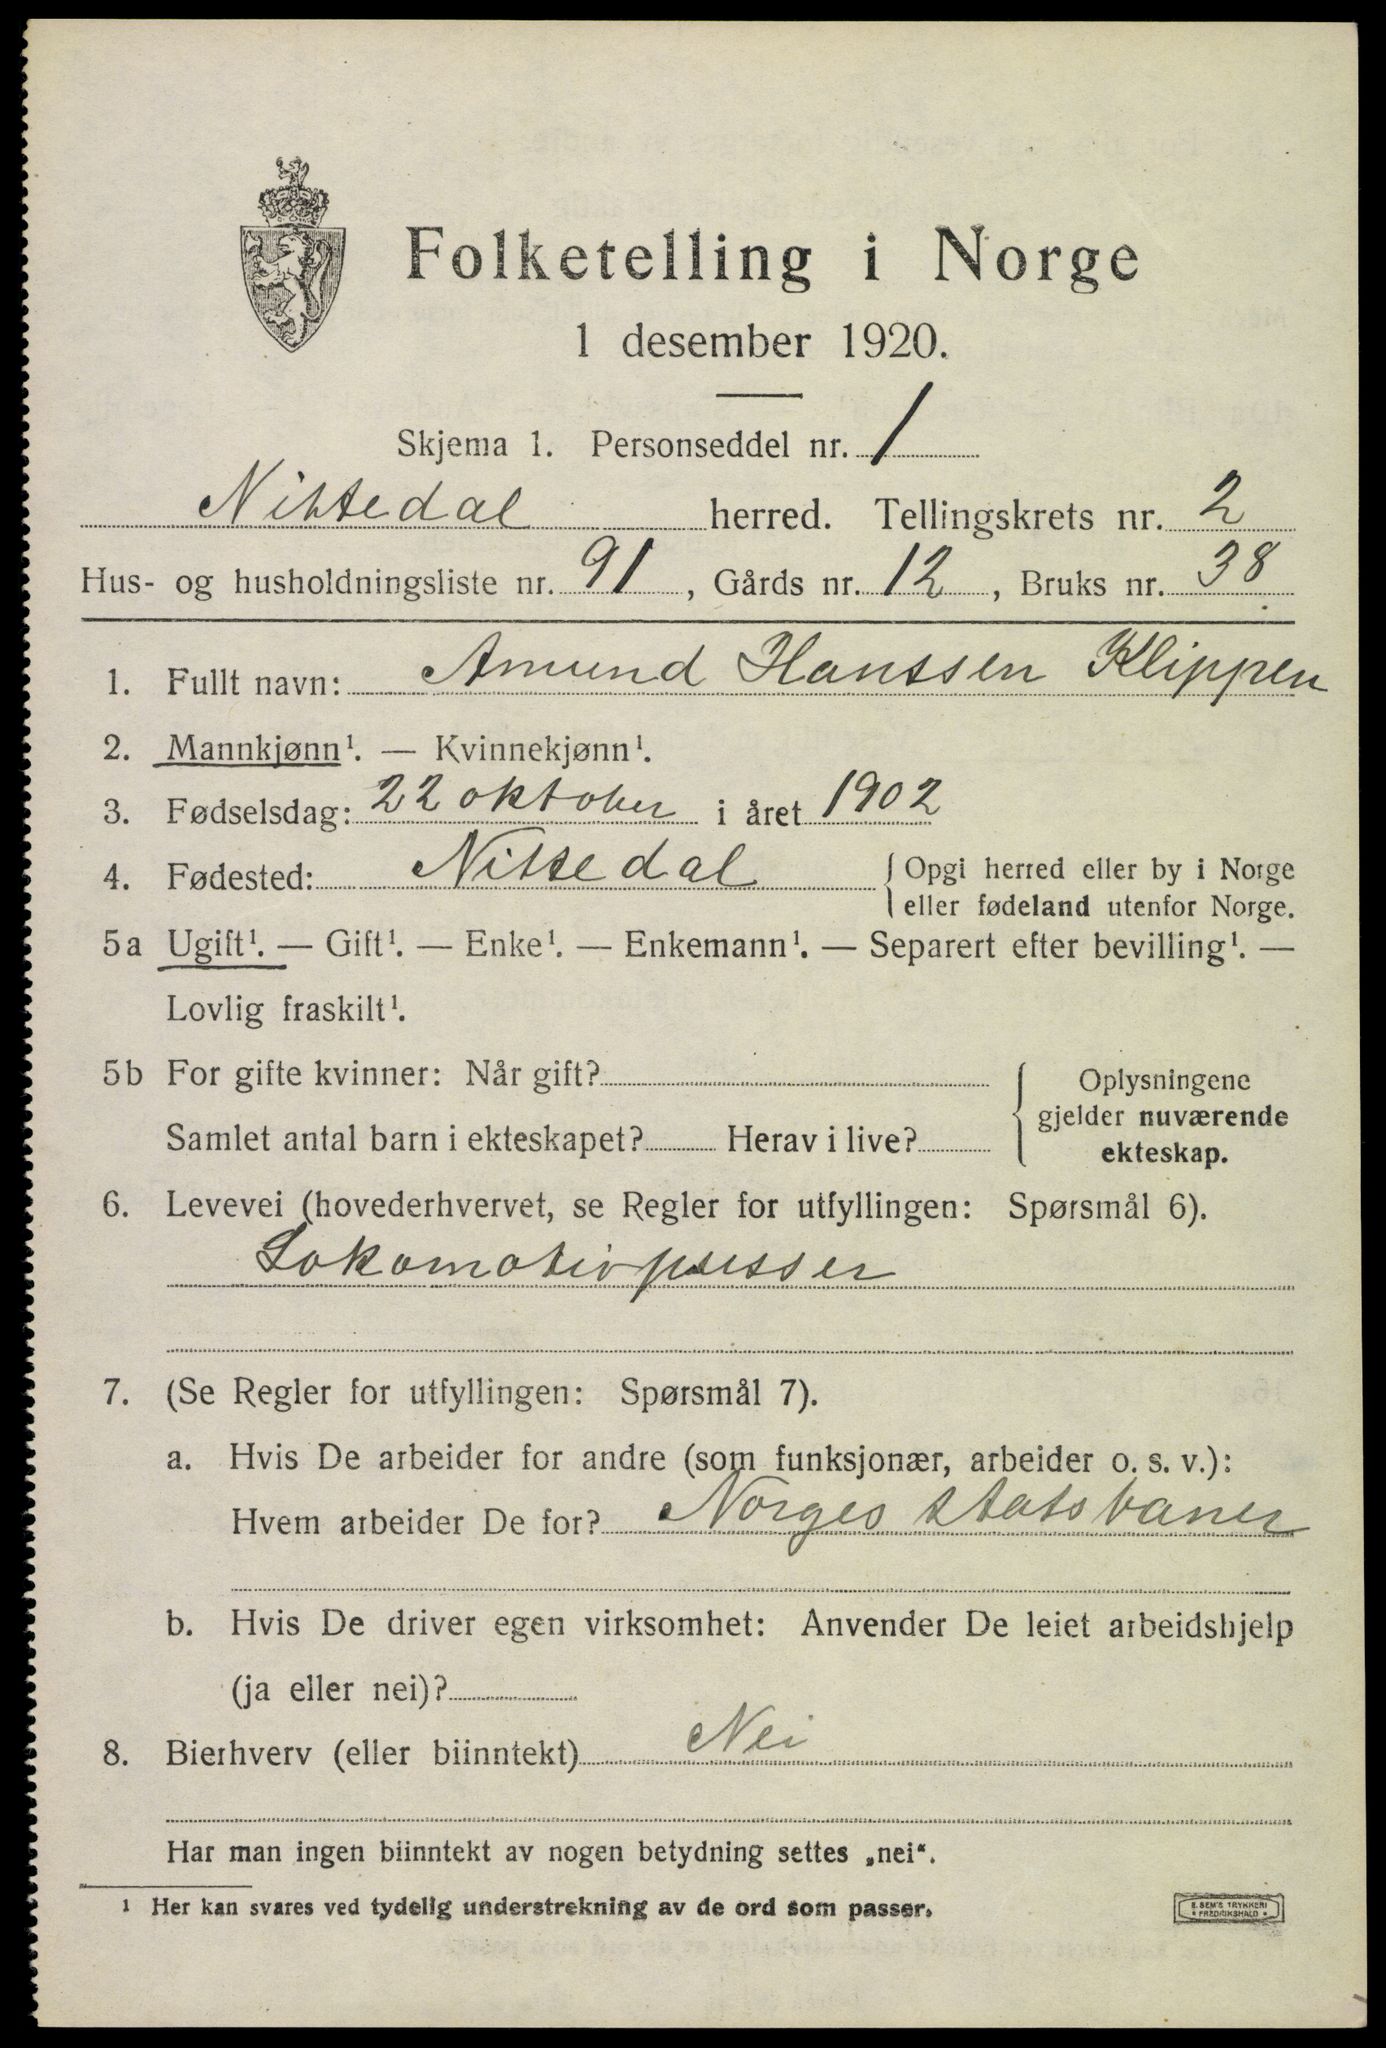 Folketelling i Norge
1 desember 1920.
Skjema 1. Personseddel nr. 1
Nittedal herred. Tellingskrets nr. 2
Hus- og husholdningsliste nr. 91, Gårds nr. 12, Bruks nr. 38
1. Fullt navn: Amund Hanssen Klippen
2. Mannkjønn¹. — Kvinnekjønn¹.
3. Fødselsdag: 22 oktober i året 1902
4. Fødested: Nittedal { Opgi herred eller by i Norge
eller fødeland utenfor Norge.
5a Ugift¹. — Gift¹. — Enke¹. — Enkemann¹. — Separert efter bevilling¹. —
Lovlig fraskilt¹.
5b For gifte kvinner: Når gift?
Samlet antal barn i ekteskapet? Herav i live?
{ Oplysningene
gjelder nuværende
ekteskap.
6. Levevei (hovederhvervet, se Regler for utfyllingen: Spørsmål 6).
Lokomotivpusser
7. (Se Regler for utfyllingen: Spørsmål 7).
a. Hvis De arbeider for andre (som funksjonær, arbeider o. s. v.):
Hvem arbeider De for? Norges statsbaner
b. Hvis De driver egen virksomhet: Anvender De leiet arbeidshjelp
(ja eller nei)?
8. Bierhverv (eller biinntekt) Nei
Har man ingen biinntekt av nogen betydning settes „nei“.
¹ Her kan svares ved tydelig understrekning av de ord som passer.
E. SEM'S TRYKKERI
• FREDRIKSHALD •